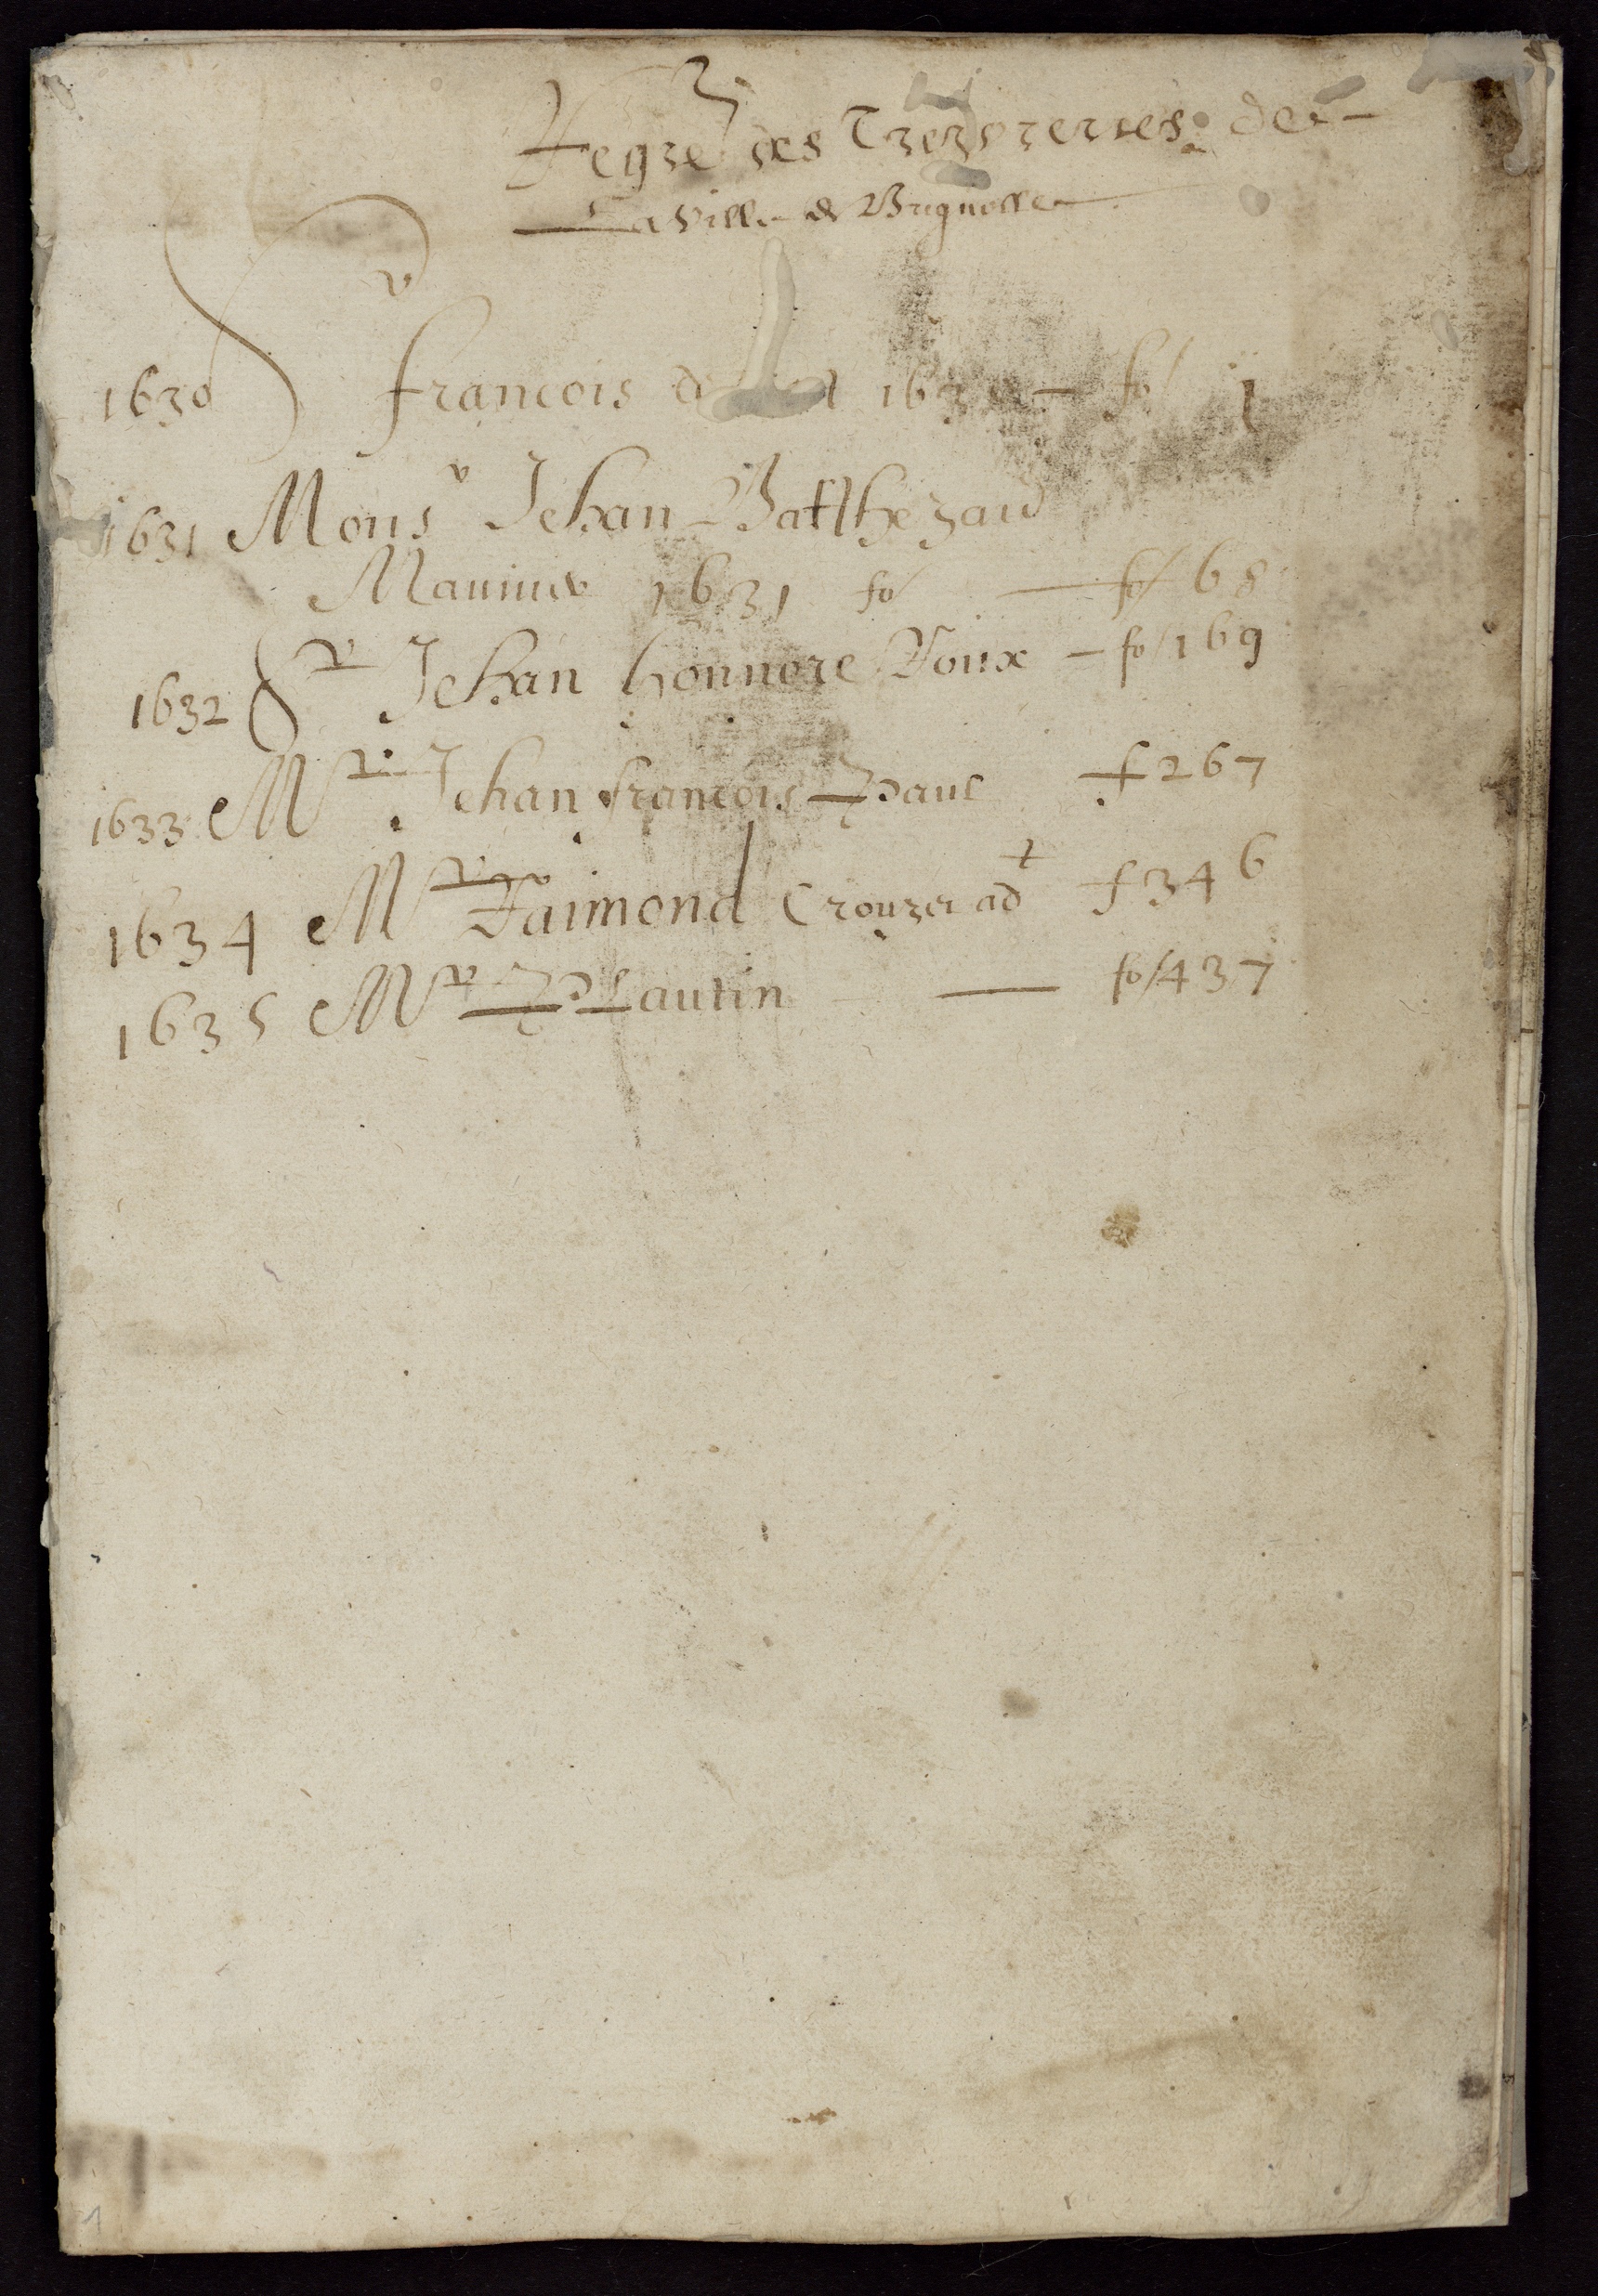 Regre des Trezoreries de
La Ville de Brignolle
1630 Sr francois 1630 fo 1
1631 Monsr Jehan Balthezard
Maunier 1631 fo fo 68
1632 Sr Jehan honnore Roux fo 169
1633 Mr Jehan francois Paul f 267
1634 Mr Raimond Crouzet adt f 346
1635 Mr Plautin fo 437
1